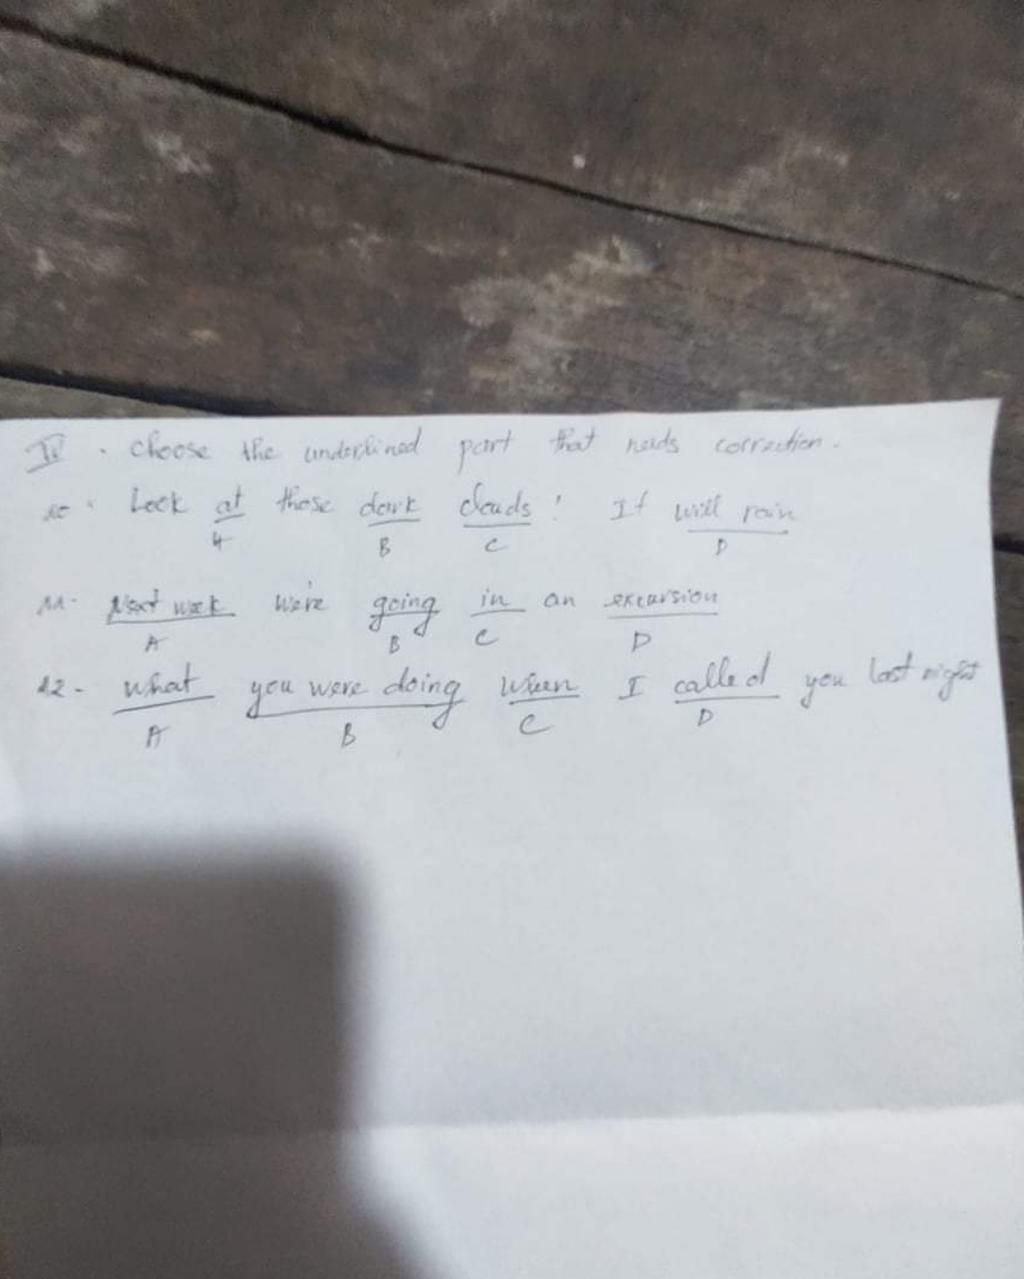 IV. choose the underlined part that needs correction.
10. Look at those dark clouds! It will rain
A B C D
11- Next week we're going in an excursion
A B C D
12- what you were doing when I called you last night
A B C D